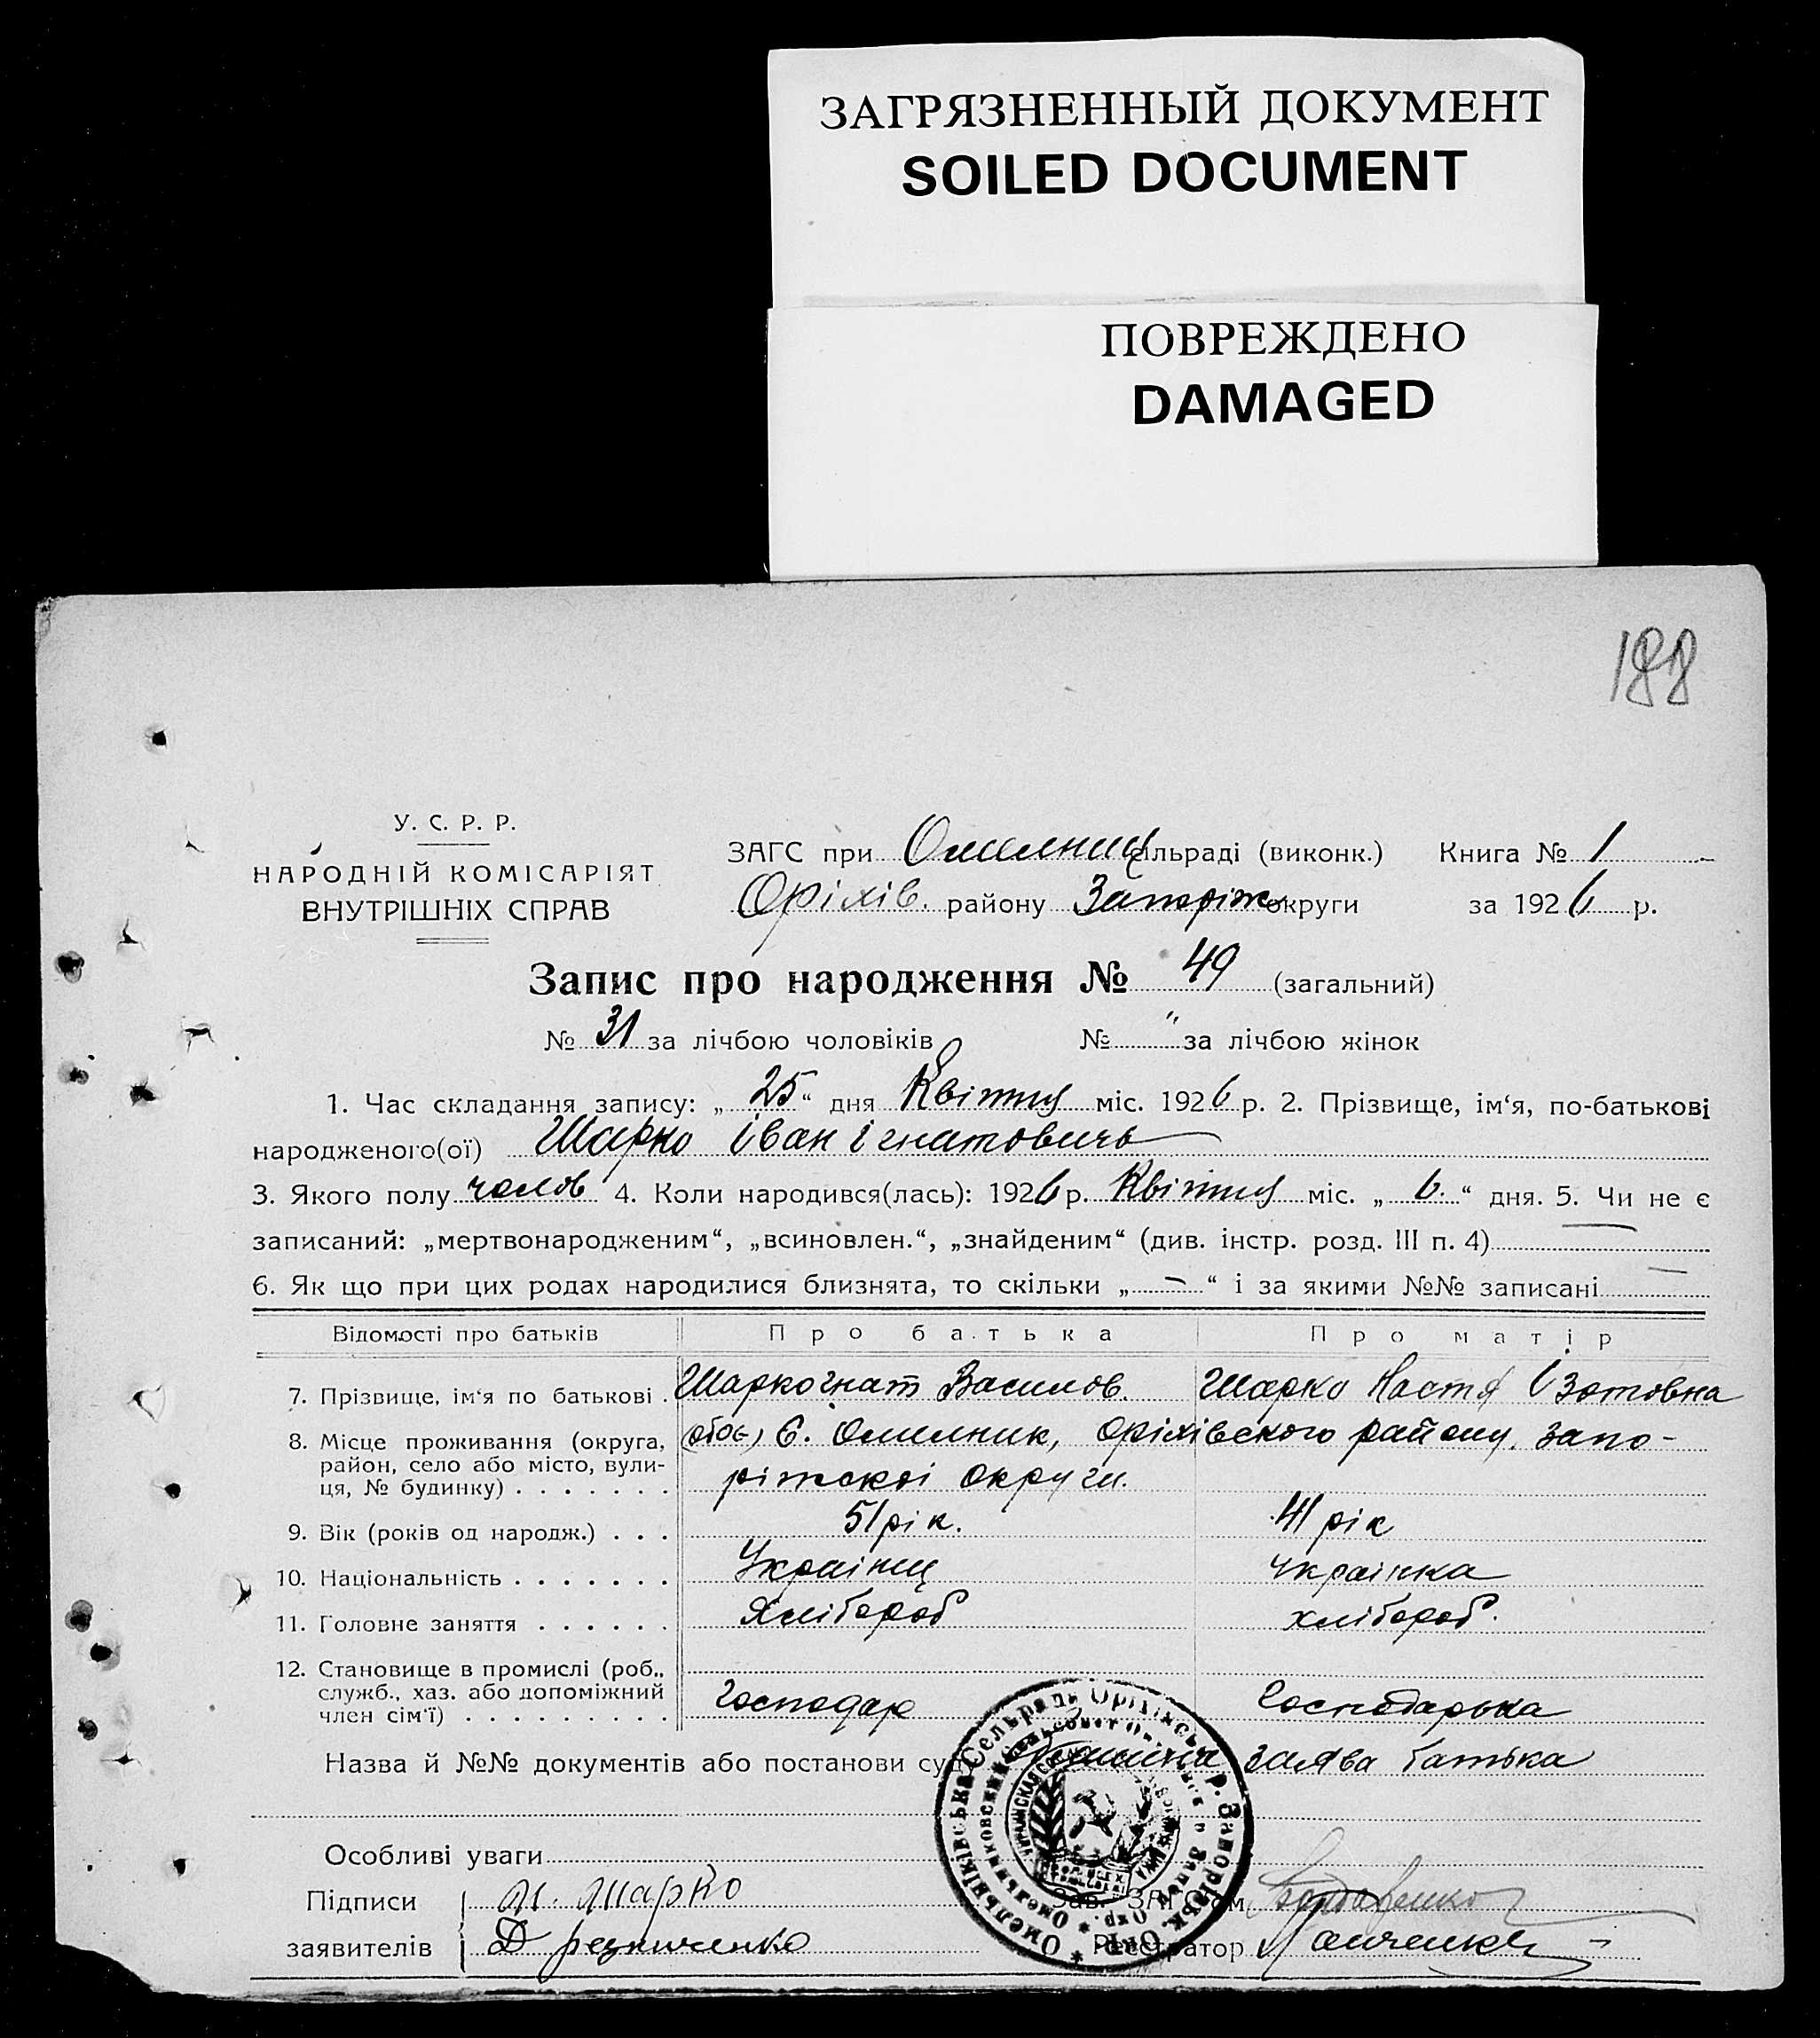 ЗАГРЯЗНЕННЫЙ ДОКУМЕНТ
SOILED DOCUMENT
ПОВРЕЖДЕНО
DAMAGED
188
У. С. Р. Р.
НАРОДНІЙ КОМІСАРІЯТ
ВНУТРІШНІХ СПРАВ
ЗАГС при Омелниц сільраді (виконк.) Книга № 1
Оріхів. району Запоріж округи за 1926 р.
Запис про народження № 49 (загальний)
№ 31 за лічбою чоловіків № " за лічбою жінок
1. Час складання запису: „25“ дня Квітня міс. 1926 р. 2. Прізвище, ім‘я, по-батькові
народженого(ої) Шарко Іван Ігнатовичь
3. Якого полу чолов 4. Коли народився(лась): 1926 р. Квітня міс. „6.“ дня. 5. Чи не є
записаний: „мертвонародженим“, „всиновлен.“, „знайденим“ (див. інстр. розд. III п. 4) —
6. Як що при цих родах народилися близнята, то скільки „—“ і за якими №№ записані —
Відомості про батьків Про батька Про матір
7. Прізвище, ім‘я по батькові . Шарко Гнат Василов. Шарко Настя Ізотовна
8. Місце проживання (округа, С. Омелник, Оріхівского району. Запо-
район, село або місто, вули-
ця, № будинку) . . . . . . . ріжскої округи.
9. Вік (років од народж.) . . . 51 рік. 41 рік
10. Національність . . . . . . . Українц Українка
11. Головне заняття . . . . . . Хлібороб хлібороб.
12. Становище в промислі (роб.,
служб., хаз. або допоміжний
член сім‘ї) . . . . . . . . . Господар Господарька
Назва й №№ документів або постанови суду заява батька
Особливі уваги
Підписи Шарко Зав. ЗАГС'ом
заявителів Д Резниченко Реєстратор
Омельниківська Сельрада Оріхівськ. Р. Запоріськ. Окр.